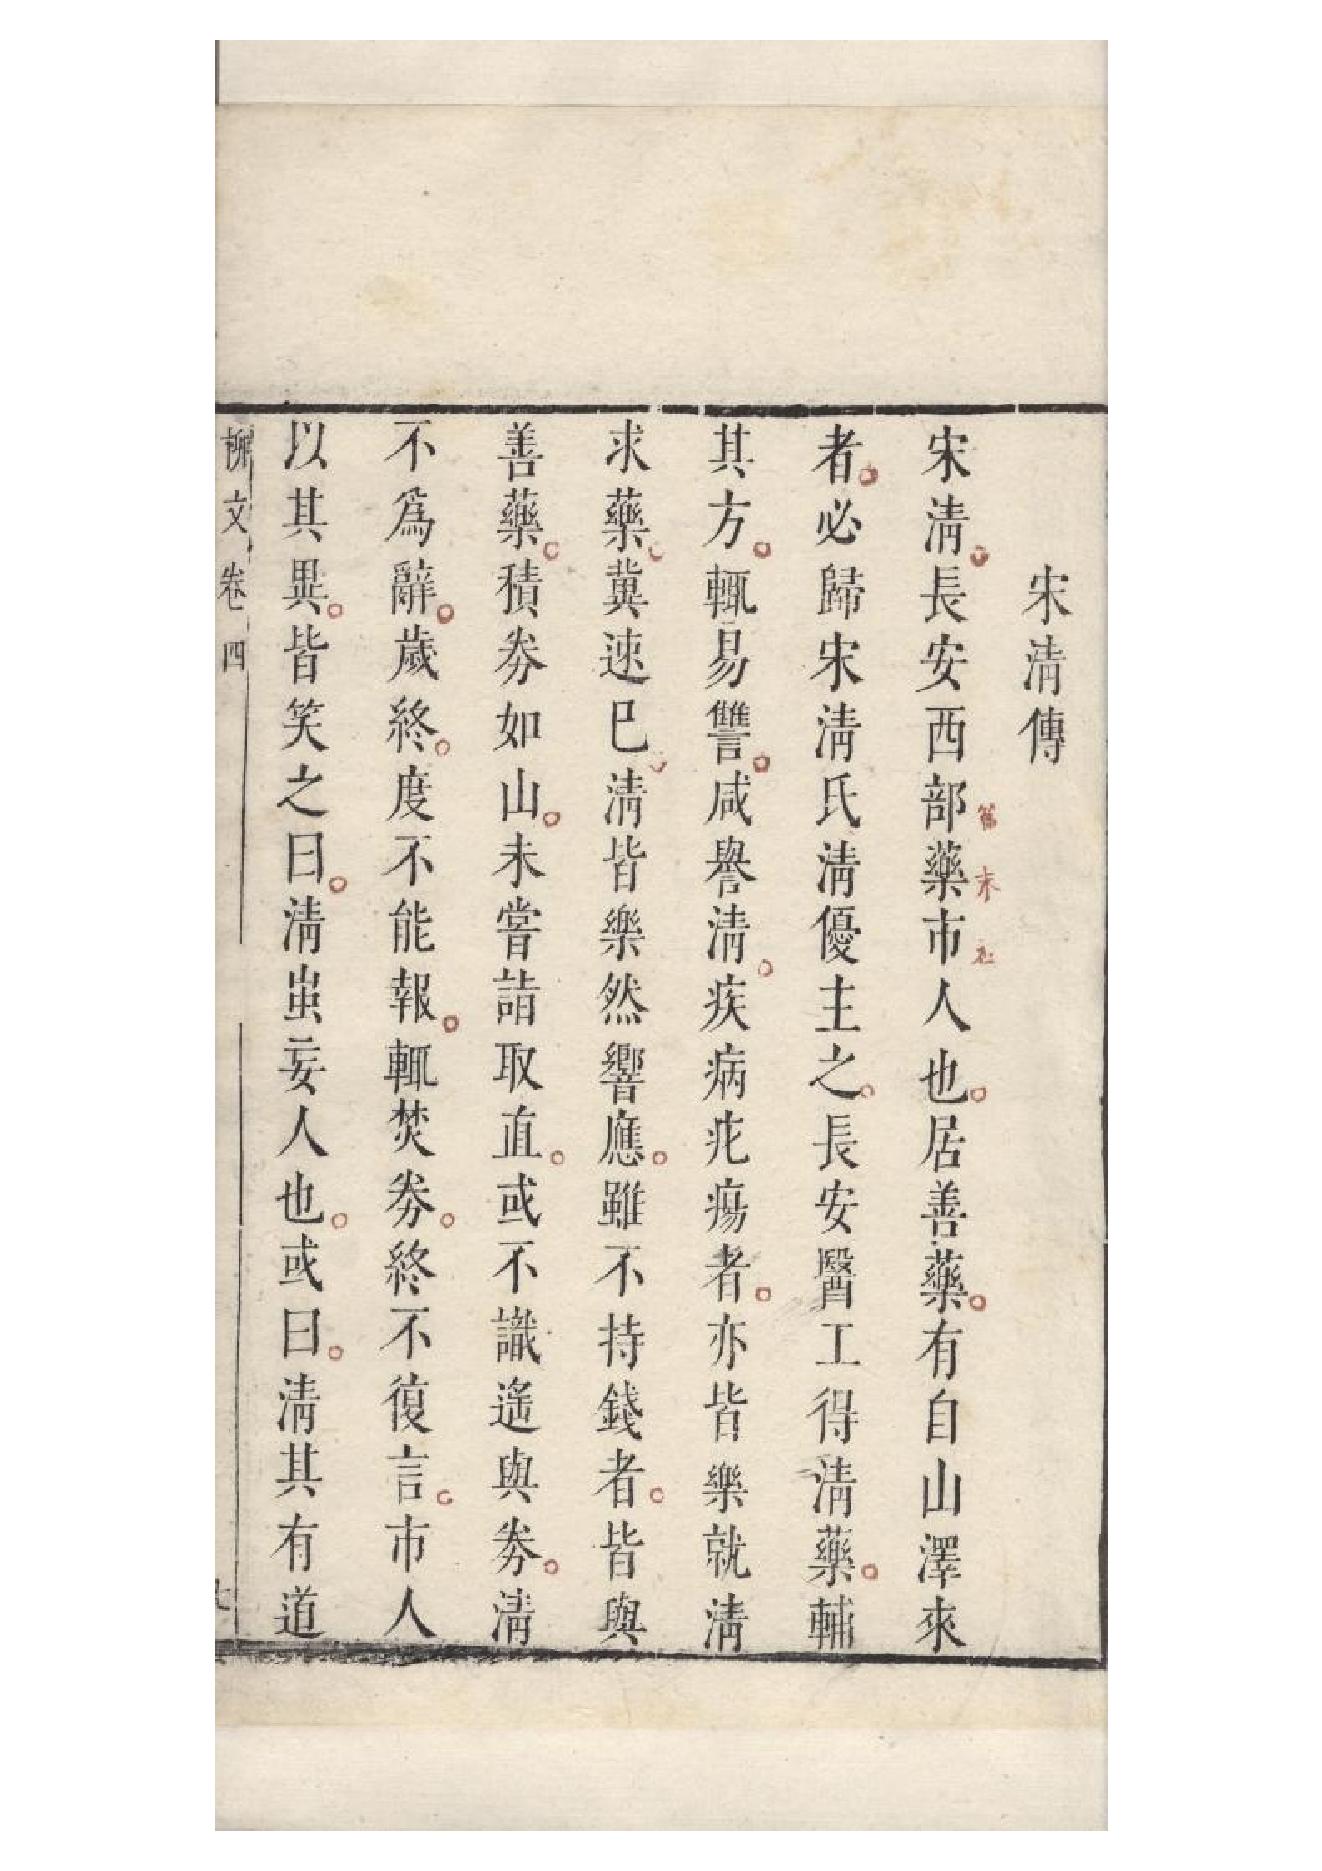 宋清傳
宋清長安西部藥市人也居善藥有自山澤來
者必歸宋清氏清優主之長安醫工得清藥輔
其方輒易讐咸譽清疾病疕瘍者亦皆樂就清
求藥冀速已清皆樂然響應雖不持錢者皆與
善藥積劵如山未嘗詣取直或不識遙與劵清
不爲辭歲終度不能報輒焚劵終不復言市人
以其異皆笑之曰清蚩妄人也或曰清其有道
柳文卷四